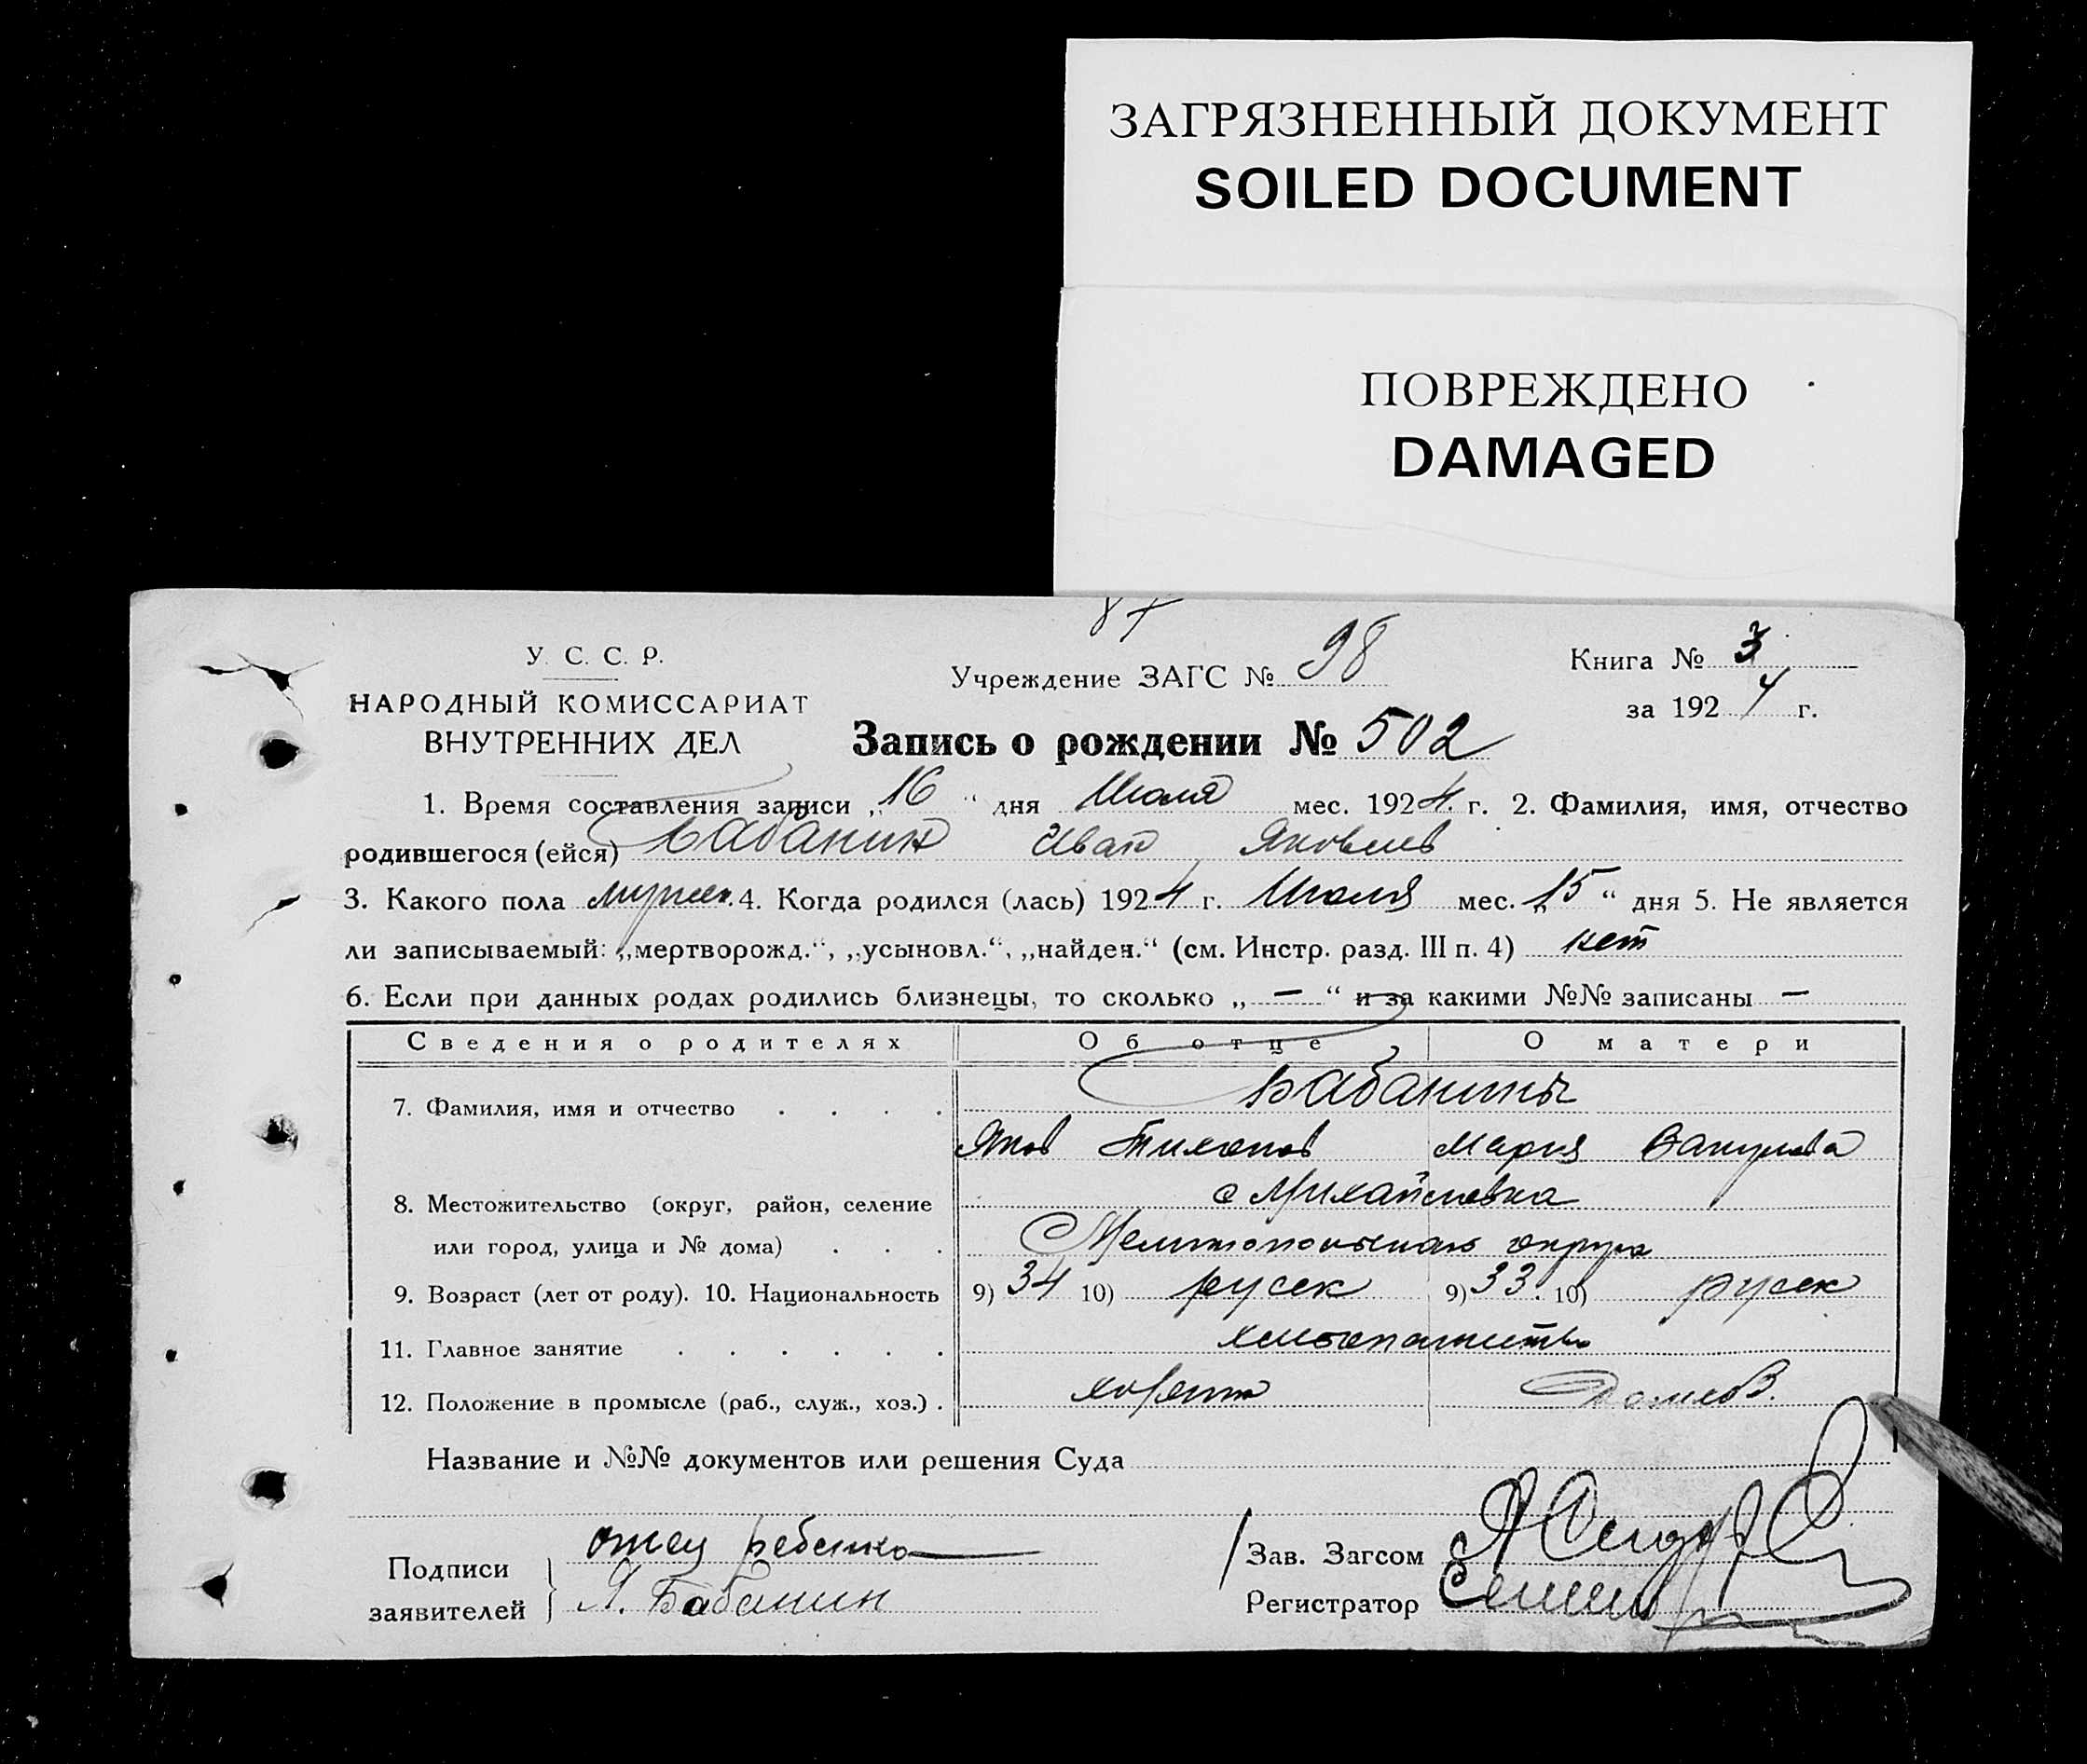 ЗАГРЯЗНЕННЫЙ ДОКУМЕНТ
SOILED DOCUMENT
ПОВРЕЖДЕНО
DAMAGED
У. С. С. Р.
НАРОДНЫЙ КОМИССАРИАТ
ВНУТРЕННИХ ДЕЛ
Учреждение ЗАГС № 98
Книга № 3
за 1924 г.
Запись о рождении № 502
1. Время составления записи „16“ дня Июля мес. 1924 г. 2. Фамилия, имя, отчество
родившегося (ейся) Бабанин Иван Яковлев
3. Какого пола мужск. 4. Когда родился (лась) 1924 г. Июля мес. „15“ дня 5. Не является
ли записываемый: „мертворожд.“, „усыновл.“, „найден.“ (см. Инстр. разд. III п. 4) нет
6. Если при данных родах родились близнецы, то сколько „—“ и за какими №№ записаны —
Сведения о родителях Об отце О матери
7. Фамилия, имя и отчество . . . . Бабанины
Яков Тихонов Мария Вакулова
8. Местожительство (округ, район, селение с Михайловка
или город, улица и № дома) . . . Мелитопольского округа
9. Возраст (лет от роду). 10. Национальность 9) 34 10) русск 9) 33. 10) русск
11. Главное занятие . . . . . . хлебопашество
12. Положение в промысле (раб., служ., хоз.) . хозяин Домхоз.
Название и №№ документов или решения Суда
Подписи заявителей отец ребенка
Я. Бабанин
Зав. Загсом
Регистратор